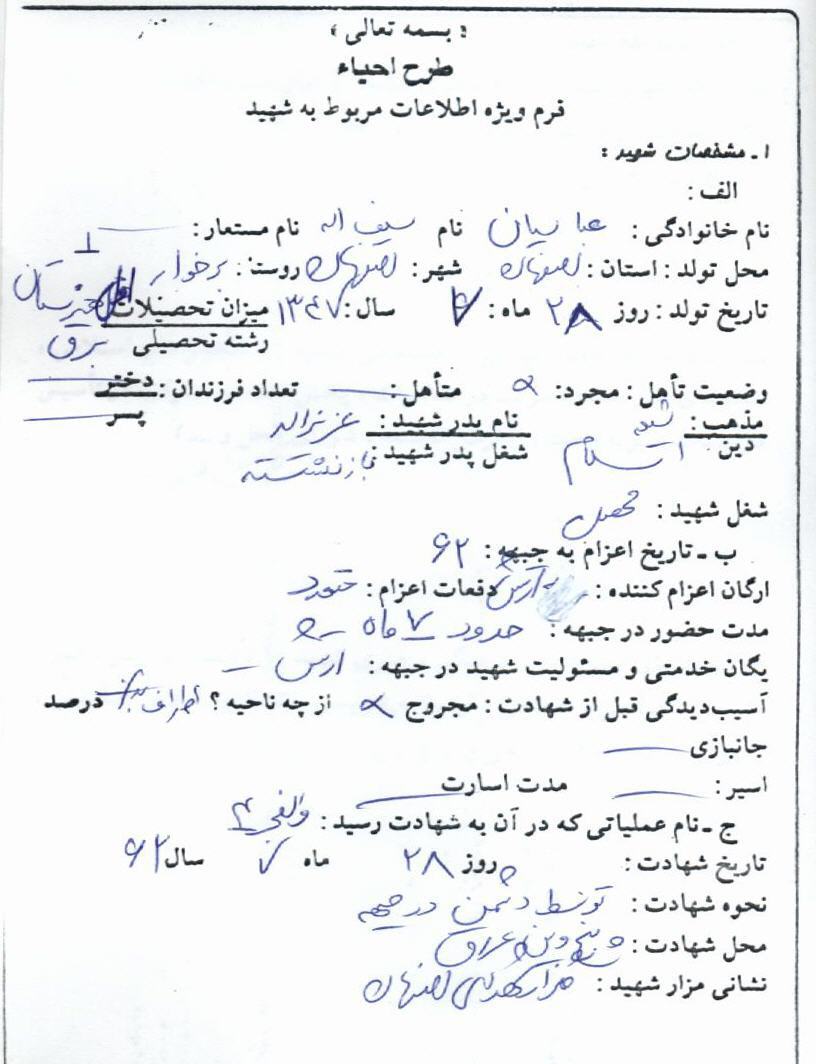 « بسمه تعالی »
طرح احیاء
فرم ویژه اطلاعات مربوط به شهید
۱ـ مشخصات شهید :
الف :
نام خانوادگی : عباسیان نام سیف اله نام مستعار : —
محل تولد : استان : اصفهان شهر : اصفهان روستا : برخوار
تاریخ تولد : روز ۲۸ ماه : ۷ سال : ۱۳۴۷ میزان تحصیلات دبیرستان
رشته تحصیلی برق
وضعیت تأهل : مجرد : متأهل : — تعداد فرزندان : دختر —
پسر —
مذهب : شیعه نام پدر شهید : عزیزاله
دین اسلام شغل پدر شهید : بازنشسته
شغل شهید : محصل
ب ـ تاریخ اعزام به جبهه : ۶۲
ارگان اعزام کننده : ارتش دفعات اعزام : متعدد
مدت حضور در جبهه : حدود ۷ ماه
یگان خدمتی و مسئولیت شهید در جبهه : ارتش —
آسیب‌دیدگی قبل از شهادت : مجروح از چه ناحیه ؟ اطراف درصد
جانبازی —
اسیر : — مدت اسارت —
ج ـ نام عملیاتی که در آن به شهادت رسید : والفجر ۴
تاریخ شهادت : روز ۲۸ ماه ۷ سال ۶۲
نحوه شهادت : توسط دشمن در جبهه
محل شهادت : پنجوین عراق
نشانی مزار شهید : گلزار شهدای اصفهان